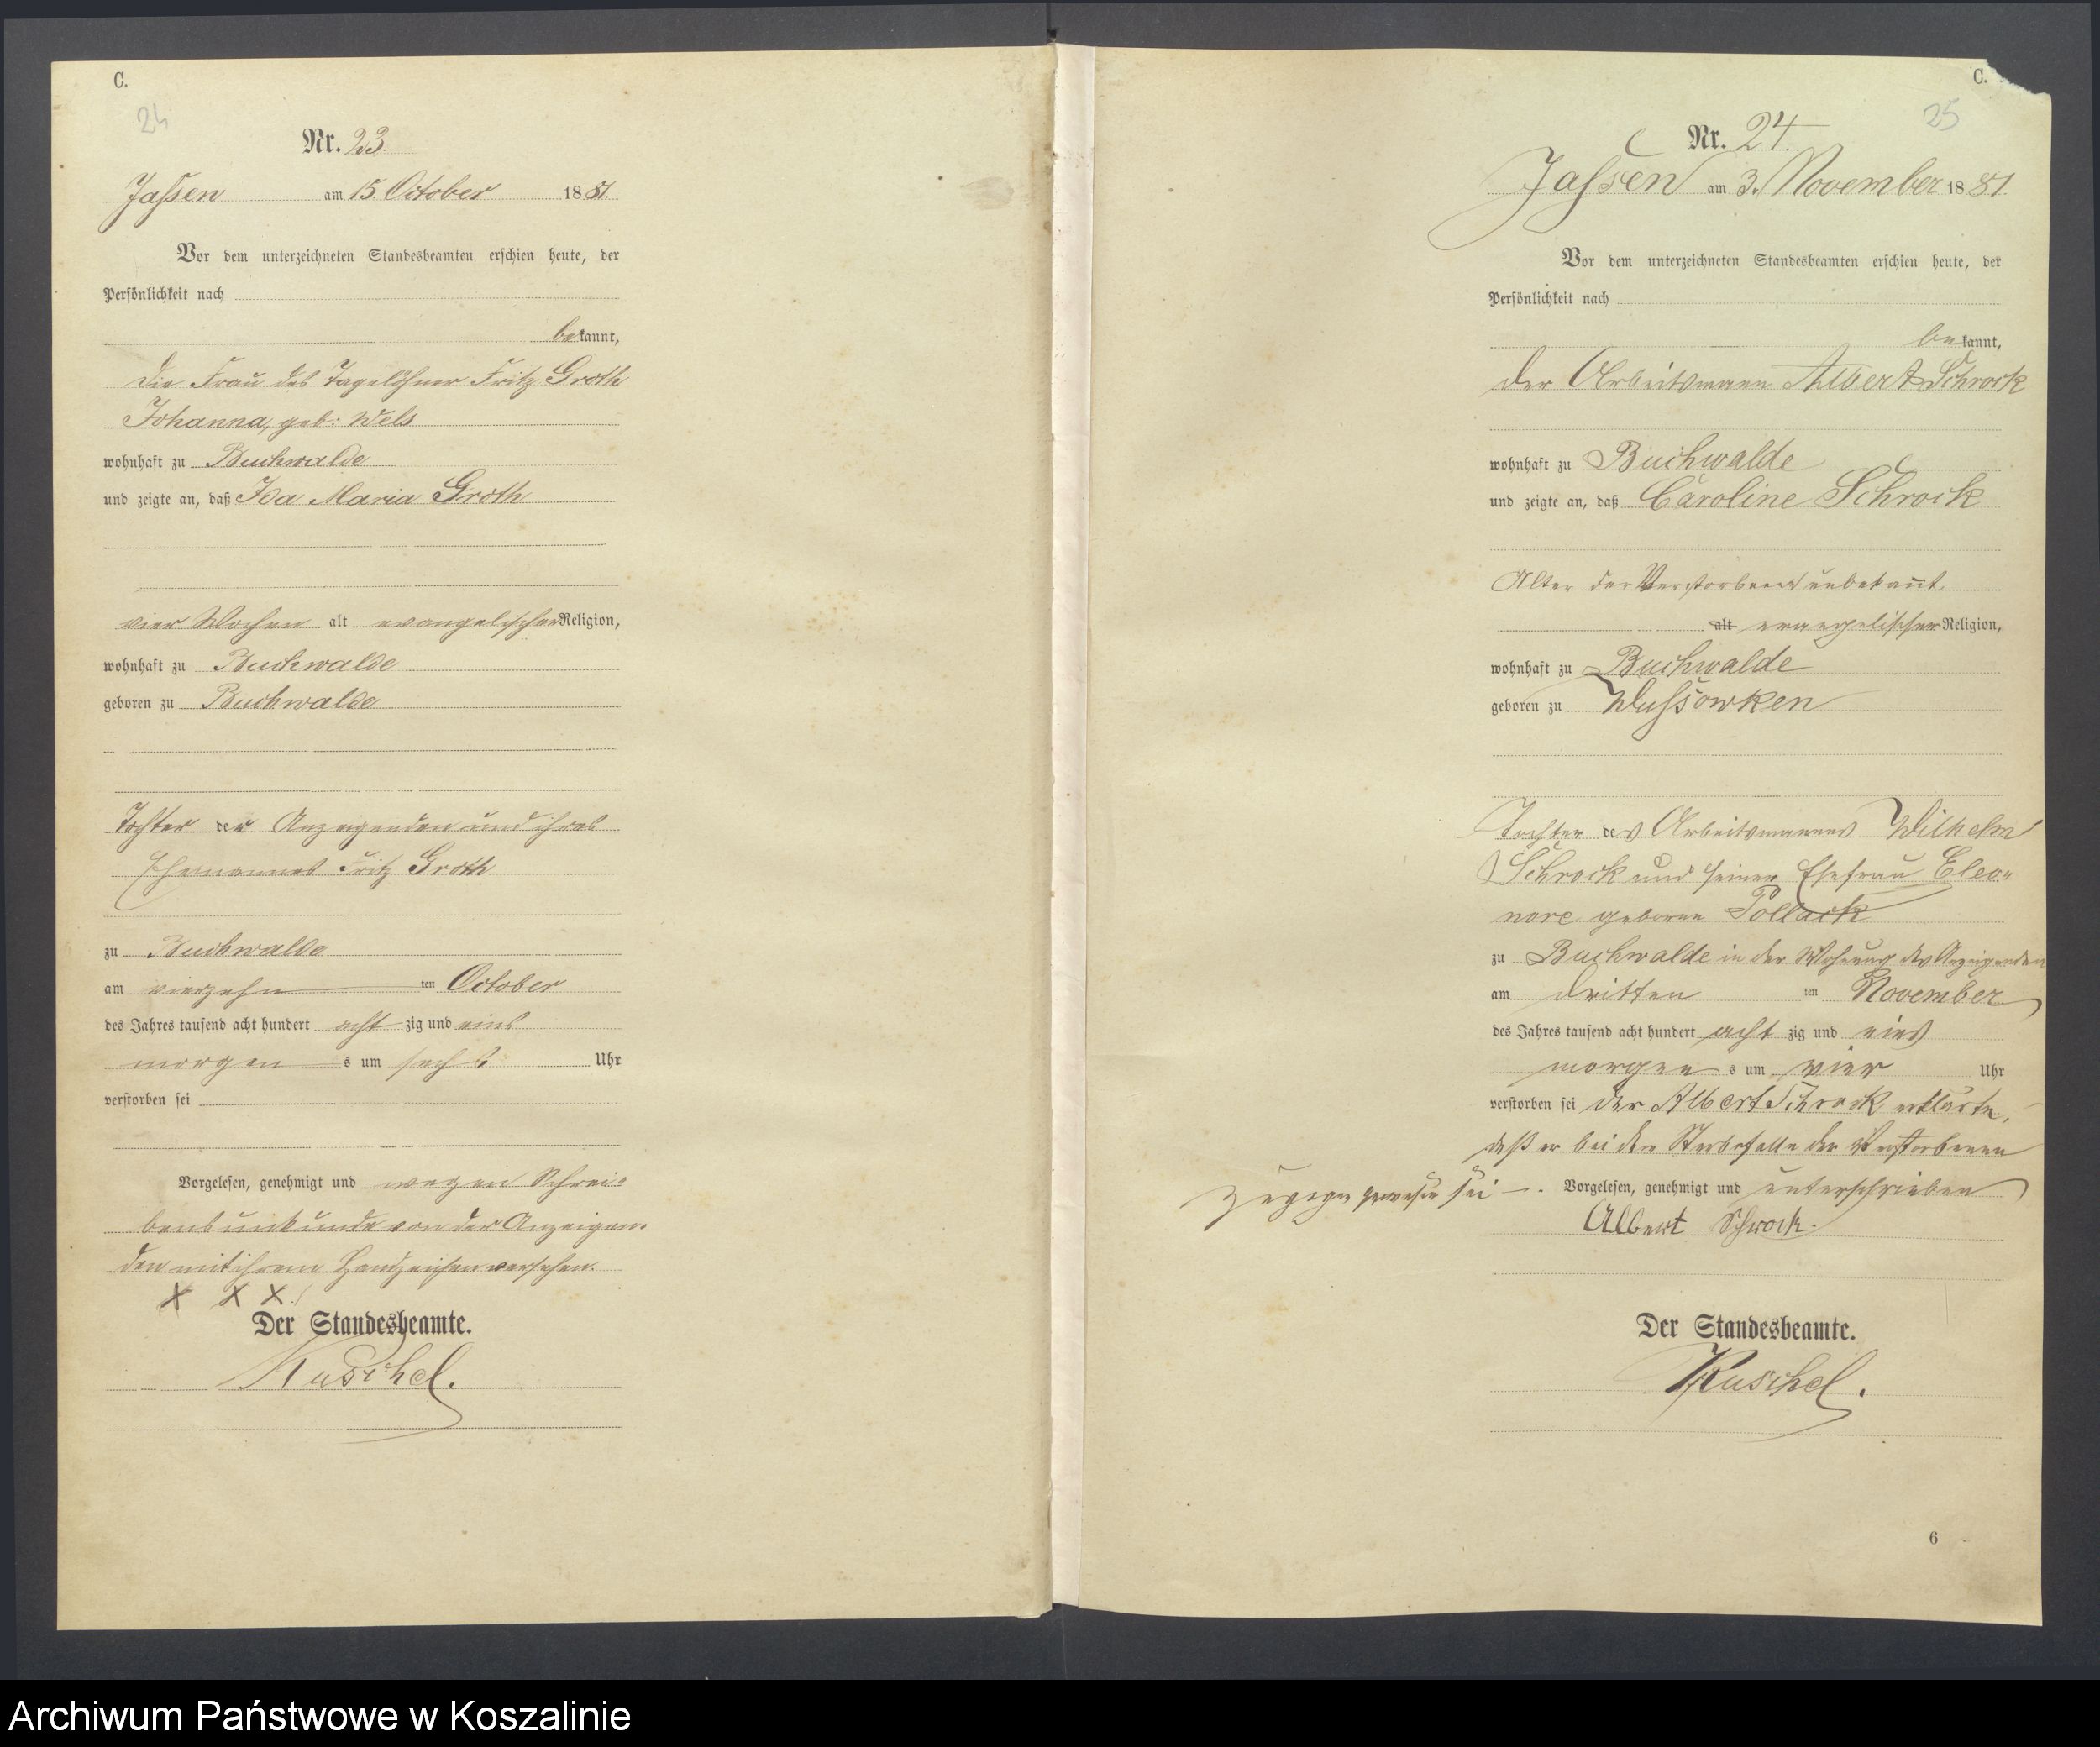 C.
24
Nr. 23.
Jassen am 15. October 1881.
Vor dem unterzeichneten Standesbeamten erschien heute, der
Persönlichkeit nach
bekannt,
die Frau des Tagelöhner Fritz Groth
Johanna, geb: Wels
wohnhaft zu Buchwalde
und zeigte an, daß Ida Maria Groth
vier Wochen alt evangelischer Religion,
wohnhaft zu Buchwalde
geboren zu Buchwalde
Tochter der Anzeigenden und ihres
Ehemannes Fritz Groth
zu Buchwalde
am vierzehn ten October
des Jahres tausend acht hundert acht zig und eins
morgen s um sechs Uhr
verstorben sei
Vorgelesen, genehmigt und wegen Schrei-
bensunkunde von der Anzeigen-
den mit ihrem Handzeichen versehen.
X X X
Der Standesbeamte.
Kuschel.
C.
25
Nr. 24.
Jassen am 3. November 1881.
Vor dem unterzeichneten Standesbeamten erschien heute, der
Persönlichkeit nach
bekannt,
der Arbeitsmann Albert Schrock
wohnhaft zu Buchwalde
und zeigte an, daß Caroline Schrock
Alter der Verstorbenen unbekannt.
alt evangelischer Religion,
wohnhaft zu Buchwalde
geboren zu Wussowken
Tochter des Arbeitsmannes Wilhelm
Schrock und seiner Ehefrau Eleo-
nore geborene Pollack
zu Buchwalde in der Wohnung des Anzeigenden
am dritten ten November
des Jahres tausend acht hundert acht zig und eins
morgen s um vier Uhr
verstorben sei der Albert Schrock erklärte,
daß er bei dem Sterbefalle der Verstorbenen
zugegen gewesen sei –. Vorgelesen, genehmigt und unterschrieben
Albert Schrock.
Der Standesbeamte.
Kuschel.
6
Archiwum Państwowe w Koszalinie